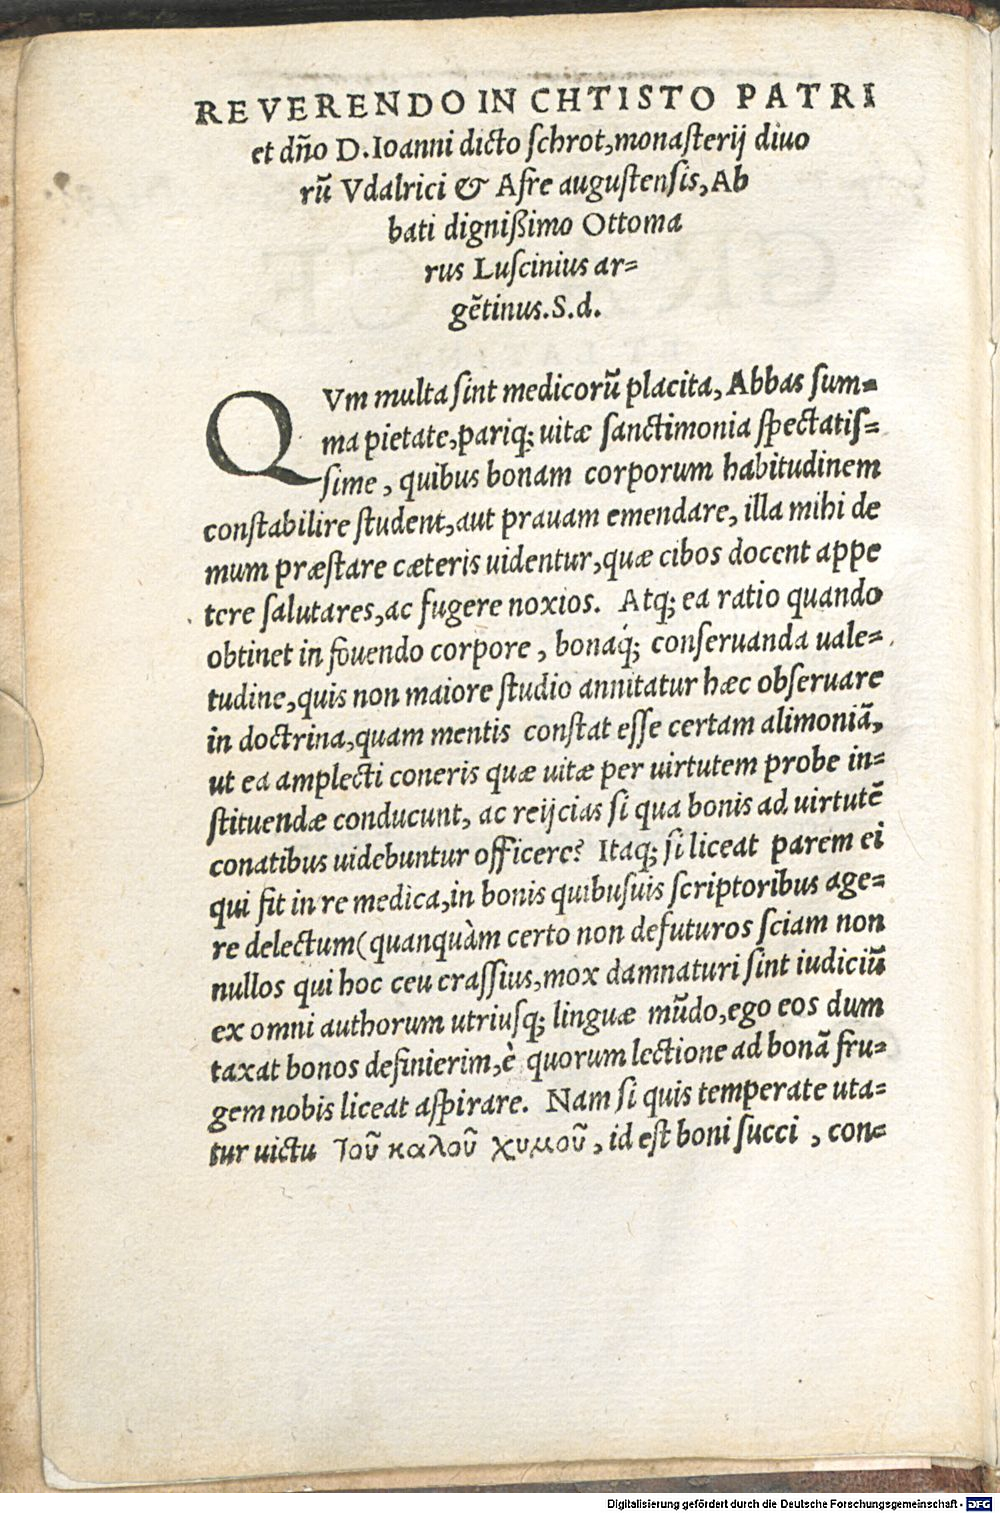 REVERENDO IN CHTISTO PATRI
et dño D. Ioanni dicto schrot, monasterij diuo
rũ Vdalrici & Afre augustensis, Ab
bati dignißimo Ottoma
rus Luscinius ar=
gẽtinus. S. d.
QVm multa sint medicorũ placita, Abbas sum=
ma pietate, pariq; uitæ sanctimonia spectatis=
sime, quibus bonam corporum habitudinem
constabilire student, aut prauam emendare, illa mihi de
mum præstare cæteris uidentur, quæ cibos docent appe
tere salutares, ac fugere noxios. Atq; ea ratio quando
obtinet in fouendo corpore, bonaq́; conseruanda uale=
tudine, quis non maiore studio annitatur hæc obseruare
in doctrina, quam mentis constat esse certam alimoniã,
ut ea amplecti coneris quæ uitæ per uirtutem probe in=
stituendæ conducunt, ac reijcias si qua bonis ad uirtutẽ
conatibus uidebuntur officere? Itaq; si liceat parem ei
qui fit in re medica, in bonis quibusuis scriptoribus age=
re delectum (quanquàm certo non defuturos sciam non
nullos qui hoc ceu crassius, mox damnaturi sint iudiciũ
ex omni authorum utriusq; linguæ mũdo, ego eos dum
taxat bonos definierim, è quorum lectione ad bonã fru=
gem nobis liceat aspirare. Nam si quis temperate uta=
tur uictu τοῦ καλοῦ χυμοῦ, id est boni succi, con=
Digitalisierung gefördert durch die Deutsche Forschungsgemeinschaft - DFG